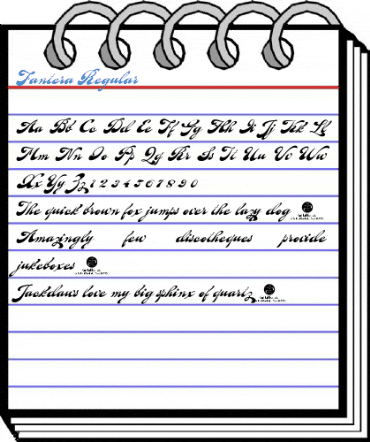 Taniera Regular
Aa Bb Cc Dd Ee Ff Gg Hh Ii Jj Kk Ll
Mm Nn Oo Pp Qq Rr Ss Tt Uu Vv Ww
Xx Yy Zz 1 2 3 4 5 6 7 8 9 0
The quick brown fox jumps over the lazy dog
Amazingly few discotheques provide
jukeboxes
Jackdaws love my big sphinx of quartz